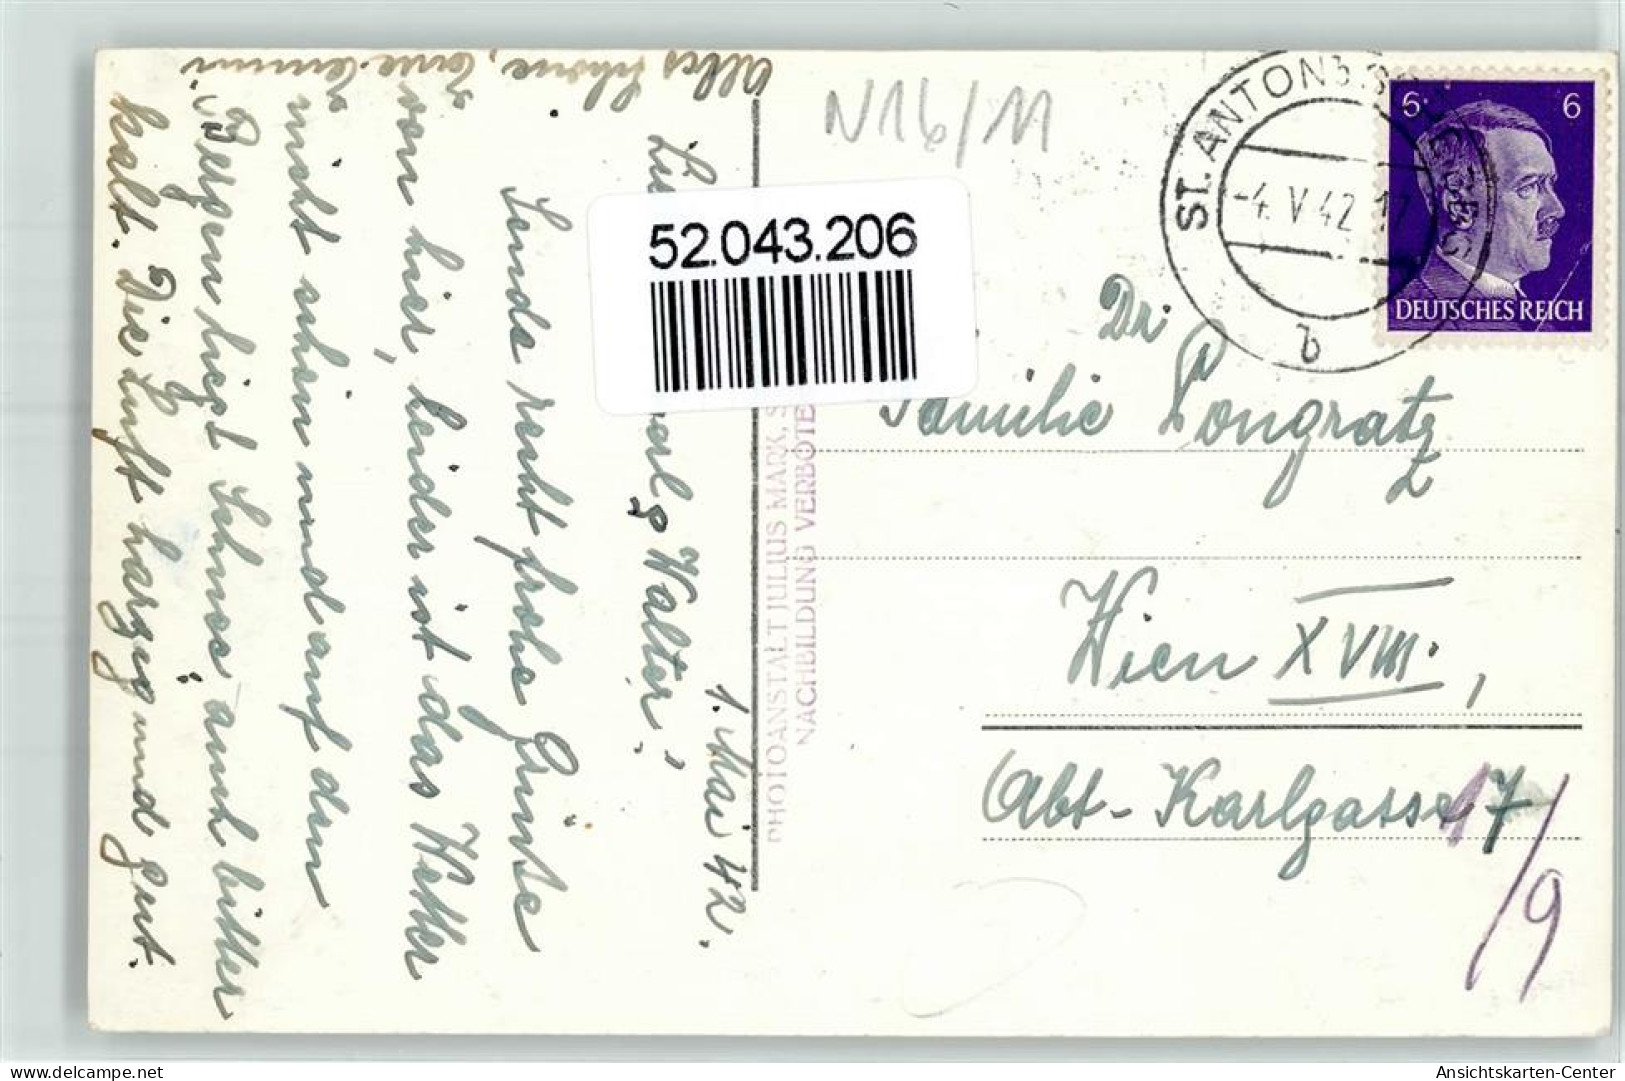 N16/11
ST. ANTON
-4. V 42 17
b
6 6
DEUTSCHES REICH
52.043.206
Dr.
Familie Pongratz
Wien XVIII.,
Abt-Karlgasse 17
/9
PHOTOANSTALT JULIUS MARK, S
NACHBILDUNG VERBOTE
1. Mai 42.
& Walter!
Sende recht frohe Grüsse
von hier, leider ist das Wetter
nicht schön und auf den
Bergen liegt Schnee auch bitter
kalt. Die Luft harzig und gut.
Alles Schöne,
Ansichtskarten-Center
52043206 | (c) akpool.de